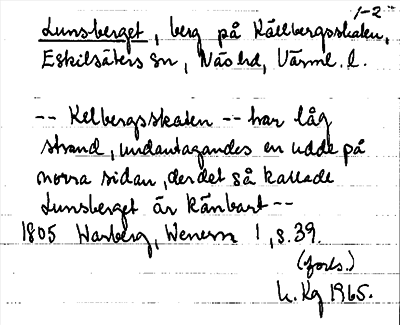 1-2
Lunsberget, berg på Källbergsskaten,
Eskilsäters sn, Näs hd, Värml. l.
-- Kelbergsskaten -- har låg
strand, undantagandes en udde på
norra sidan, der det så kallade
Lunsberget är känbart --
1805 Warberg, Wenern 1, s. 39.
(forts.)
K. Kg 1965.